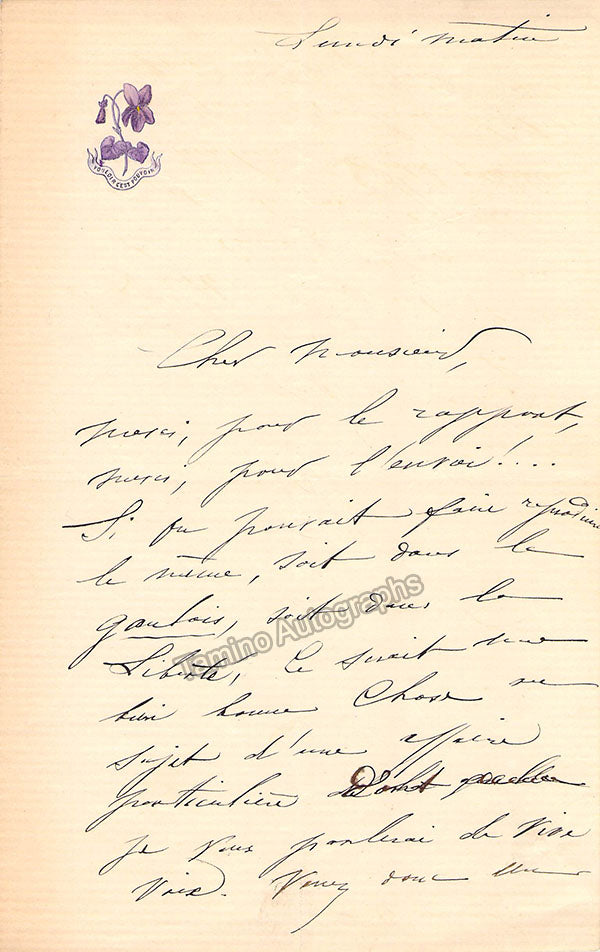 Lundi matin
VOULOIR C'EST POUVOIR
Cher Monsieur,
merci, pour le rapport,
merci, pour l'envoi!....
Si on pouvait faire reproduire
le même, soit dans le
gaulois, soit dans la
Liberté, ce serait une
bien bonne chose au
sujet d'une affaire
particulière dont
je vous parlerai de vive
voix. Venez donc
Tamino Autographs